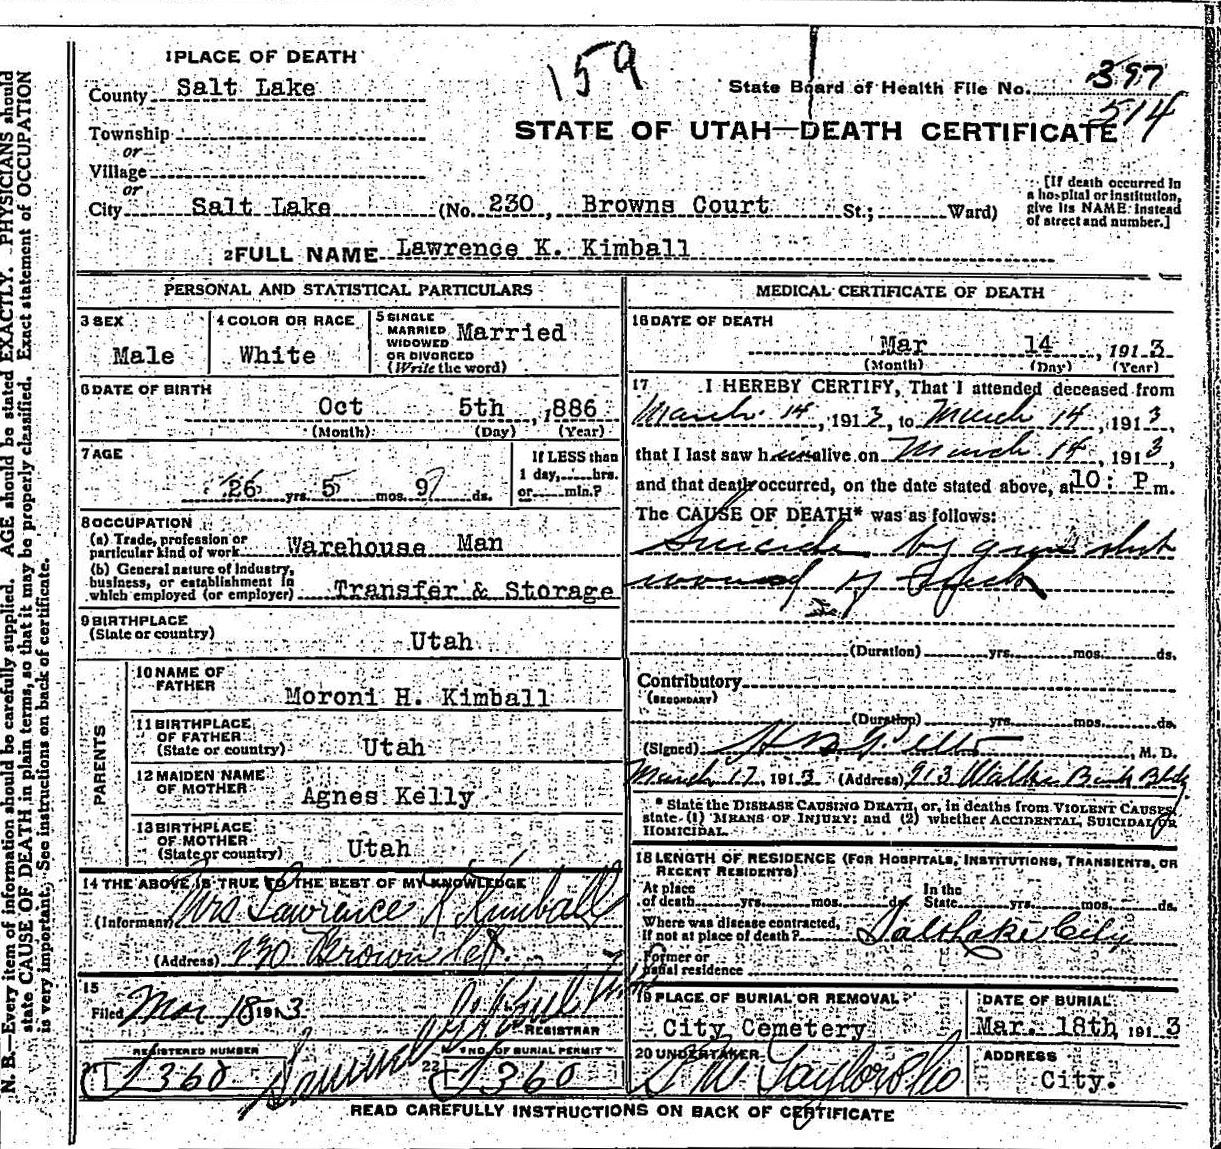 N. B.—Every item of information should be carefully supplied. AGE should be stated EXACTLY. PHYSICIANS should
state CAUSE OF DEATH in plain terms, so that it may be properly classified. Exact statement of OCCUPATION
is very important. See instructions on back of certificate.
1 PLACE OF DEATH
159
County Salt Lake
State Board of Health File No. 397
514
Township
or
STATE OF UTAH—DEATH CERTIFICATE
Village
or
City Salt Lake (No. 230, Browns Court St.; Ward)
[If death occurred in
a hospital or institution,
give its NAME instead
of street and number.]
2 FULL NAME Lawrence K. Kimball
PERSONAL AND STATISTICAL PARTICULARS
3 SEX
Male
4 COLOR OR RACE
White
5 SINGLE
MARRIED
WIDOWED
OR DIVORCED
(Write the word)
Married
6 DATE OF BIRTH
Oct 5th, 1886
(Month) (Day) (Year)
7 AGE
26 yrs. 5 mos. 9 ds.
If LESS than
1 day, hrs.
or min.?
8 OCCUPATION
(a) Trade, profession or
particular kind of work Warehouse Man
(b) General nature of industry,
business, or establishment in
which employed (or employer) Transfer & Storage
9 BIRTHPLACE
(State or country) Utah
PARENTS
10 NAME OF
FATHER
Moroni H. Kimball
11 BIRTHPLACE
OF FATHER
(State or country) Utah
12 MAIDEN NAME
OF MOTHER
Agnes Kelly
13 BIRTHPLACE
OF MOTHER
(State or country) Utah
14 THE ABOVE IS TRUE TO THE BEST OF MY KNOWLEDGE
(Informant) Mrs Lawrence K Kimball
(Address) Brown Ct.
15
Filed Mar 18 1913
REGISTRAR
REGISTERED NUMBER
1360
22 NO. OF BURIAL PERMIT
1360
MEDICAL CERTIFICATE OF DEATH
16 DATE OF DEATH
Mar 14, 1913
(Month) (Day) (Year)
17 I HEREBY CERTIFY, That I attended deceased from
March 14, 1913, to March 14, 1913,
that I last saw him alive on March 14, 1913,
and that death occurred, on the date stated above, at 10: P m.
The CAUSE OF DEATH* was as follows:
Suicide by gun shot
wound of
(Duration) yrs. mos. ds.
Contributory
(SECONDARY)
(Duration) yrs. mos. ds.
(Signed) M. D.
March 17, 1913 (Address) 913 Walker Bank Bldg
* State the DISEASE CAUSING DEATH, or, in deaths from VIOLENT CAUSES,
state (1) MEANS OF INJURY; and (2) whether ACCIDENTAL, SUICIDAL, OR
HOMICIDAL.
18 LENGTH OF RESIDENCE (FOR HOSPITALS, INSTITUTIONS, TRANSIENTS, OR
RECENT RESIDENTS)
At place
of death yrs. mos. ds.
In the
State yrs. mos. ds.
Where was disease contracted,
If not at place of death? Salt Lake City
Former or
usual residence
19 PLACE OF BURIAL OR REMOVAL
City Cemetery
DATE OF BURIAL
Mar. 18th, 1913
20 UNDERTAKER
Taylor
ADDRESS
City.
READ CAREFULLY INSTRUCTIONS ON BACK OF CERTIFICATE